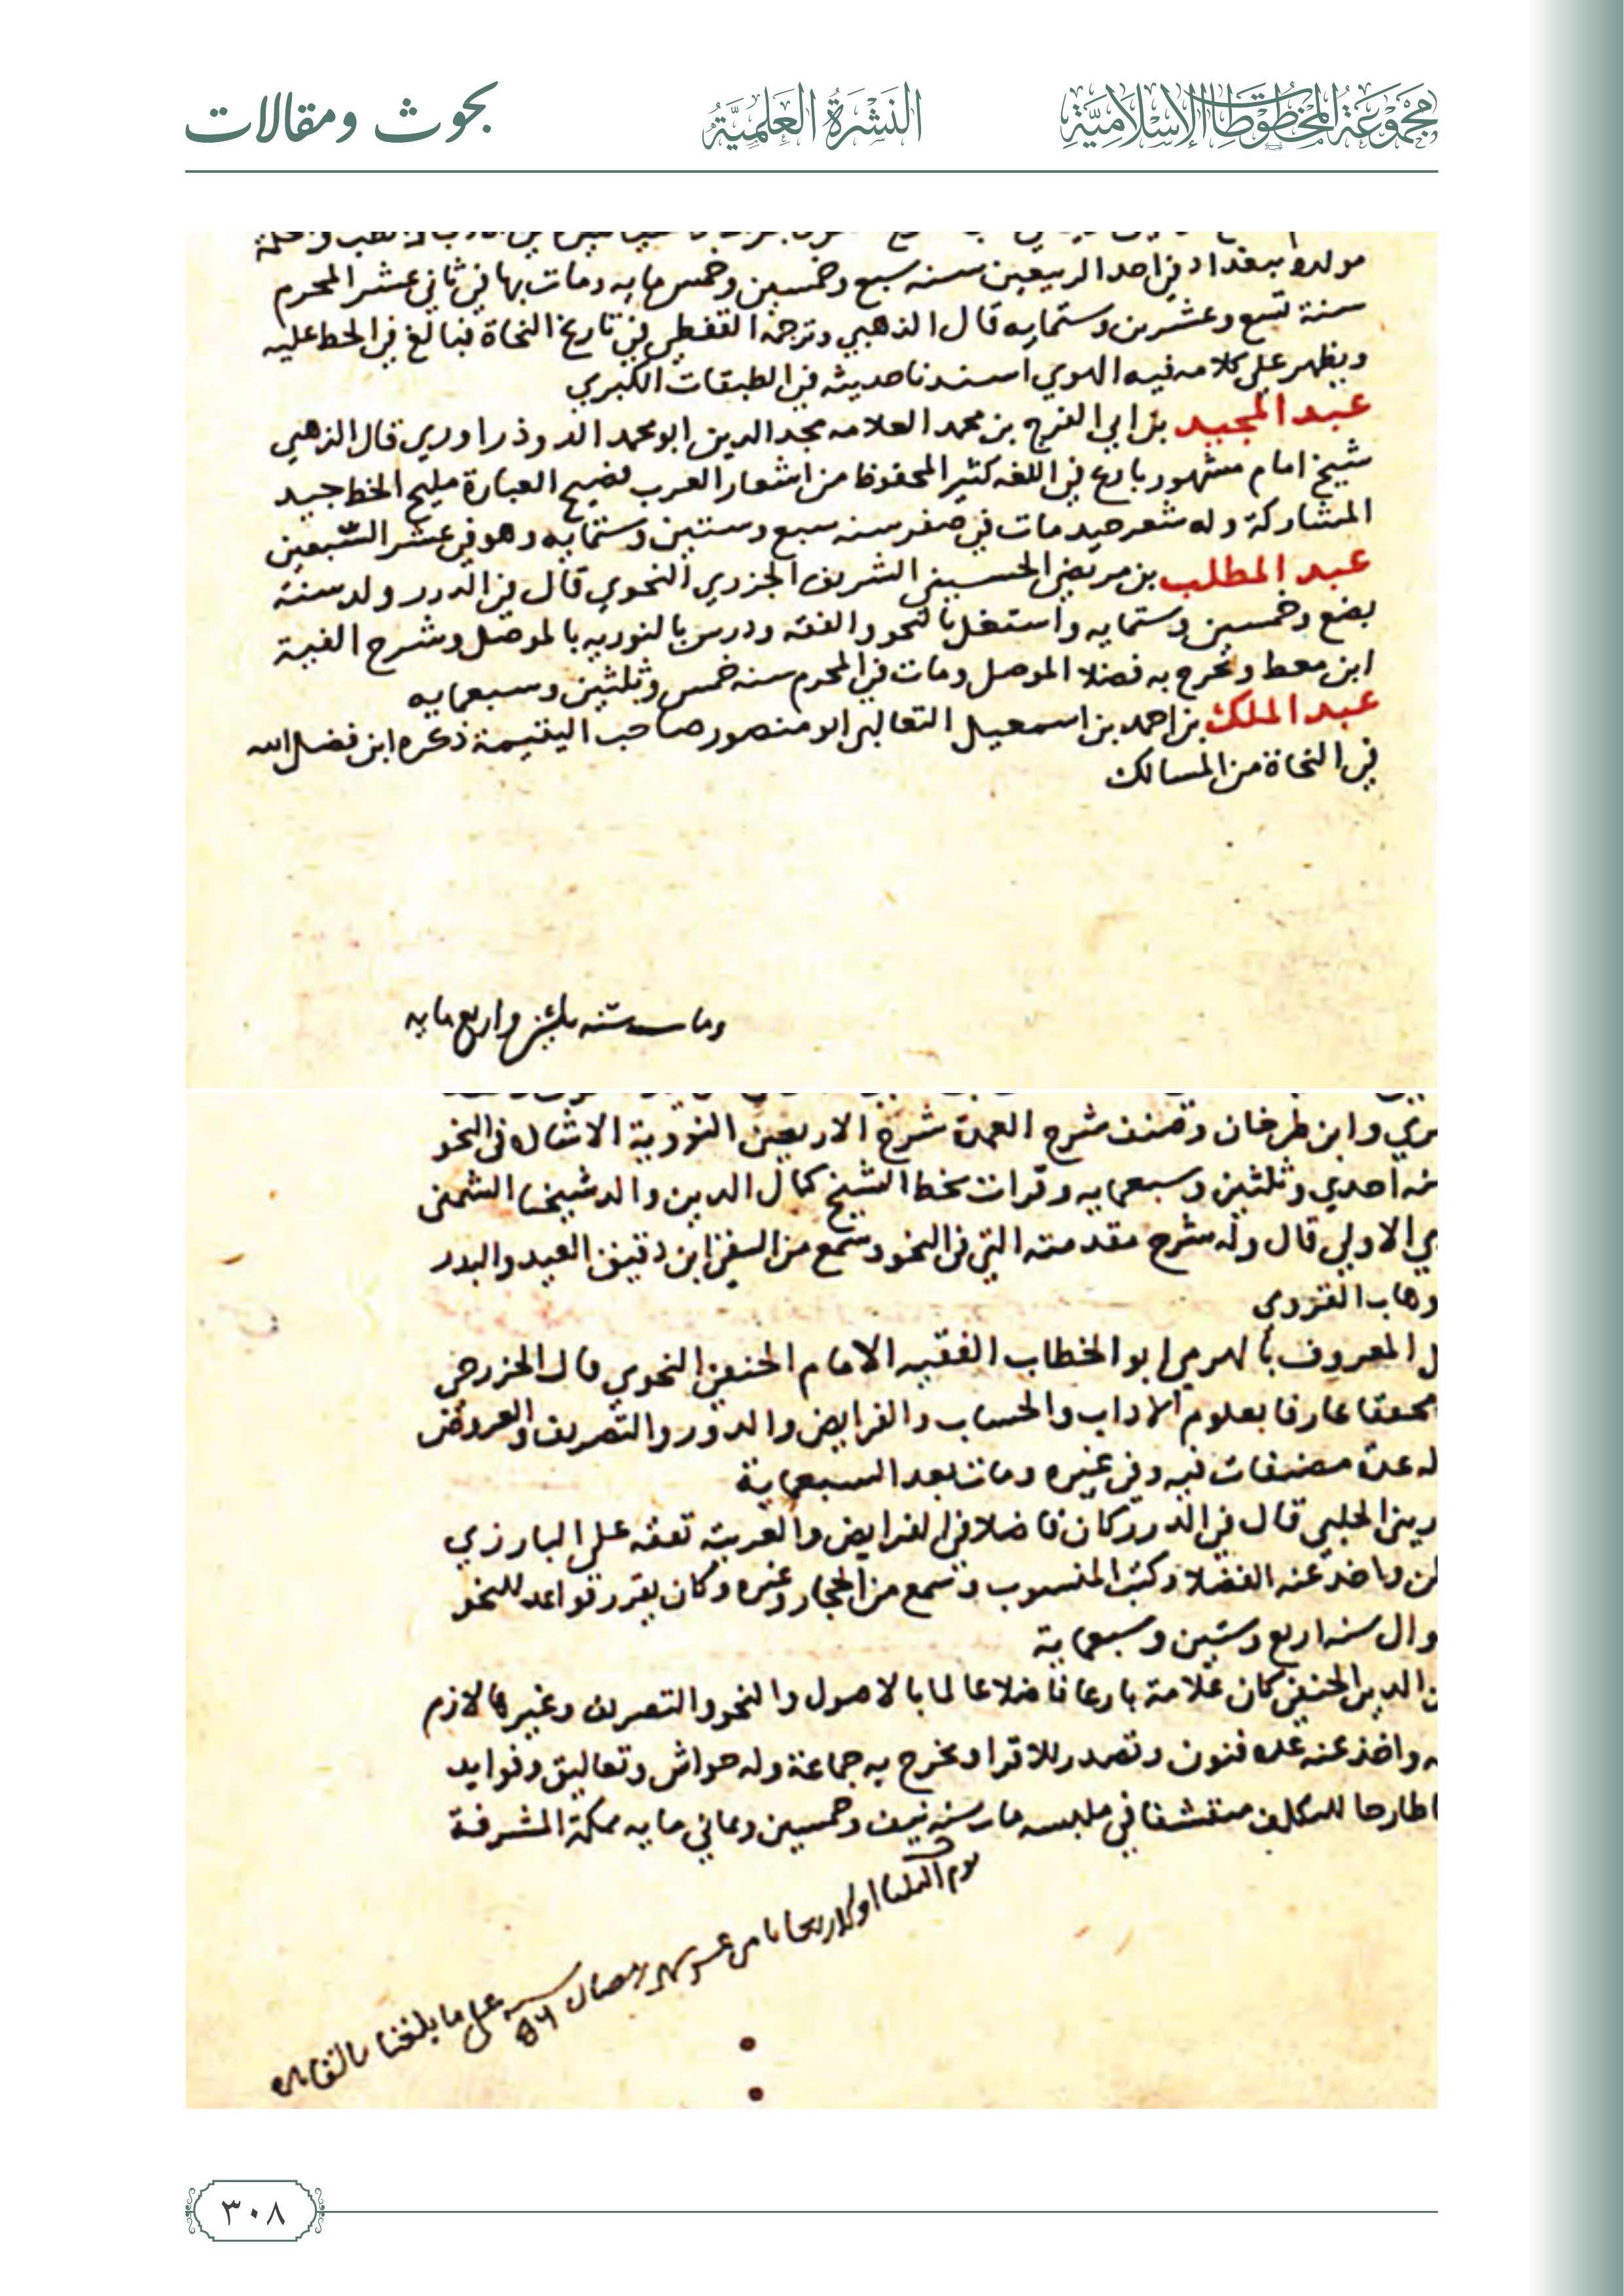 مجموعة المخطوطات الإسلامية
النشرة العلمية
بحوث ومقالات
مولده ببغداد في احد الربيعين سنه سبع وخمسين وخمس مايه ومات بها في ثاني عشر المحرم
سنة تسع وعشرين وستمايه قال الذهبي وترجمه القفطي في تاريخ النحاة فبالغ في الحط عليه
ويظهر علي كلامه فيه الهوي اسندنا حديثه في الطبقات الكبري
عبد المجيد بن ابي الفرج بن محمد العلامه مجد الدين ابو محمد الروذراوري قال الذهبي
شيخ امام مشهور بارع في اللغه كثير المحفوظ من اشعار العرب فصيح العبارة مليح الخط جيد
المشاركة وله شعر جيد مات في صفر سنه سبع وستين وستمايه وهو في عشر السبعين
عبد المطلب بن مرتضي الحسيني الشريف الجزري النحوي قال في الدرر ولد سنة
بضع وخمسين وستمايه واشتغل بالنحو والفقه ودرس بالنوريه بالموصل وشرح الفية
ابن معط وتخرج به فضلا الموصل ومات في المحرم سنه خمس وثلثين وسبعمايه
عبد الملك بن احمد بن اسمعيل الثعالبي ابو منصور صاحب اليتيمة ذكره ابن فضل الله
في النحاة من المسالك
ومات سنه ثلثين واربع مايه
وابن طرخان وصنف شرح العمدة شرح الاربعين النووية الاشاله في النحو
احدي وثلثين وسبعمايه وقرات بخط الشيخ كمال الدين والد شيخنا الشمني
الاولي قال وله شرح مقدمته التي في النحو وسمع من التقي ابن دقيق العيد والبدر
وهاب الغزوي
ل المعروف بالهرمي ابو الخطاب الفقيه الامام الحنفي النحوي قال الخزرجي
محققا عارفا بعلوم الاداب والحساب والفرايض والدور والتصريف والعروض
له عدة مصنفات فيه وفي غيره ومات بعد السبعماية
الحلبي قال في الدرر كان فاضلا في الفرايض والعربية تفقه علي البارزي
واخذ عنه الفضلا وكتب المنسوب وسمع من الحجار وغيره وكان يقرر قواعد للنحو
وال سنه اربع وستين وسبعماية
الدين الحنفي كان علامة بارعا فاضلا عالما بالاصول والنحو والتصريف وغيرها لازم
واخذ عنه عده فنون وتصدر للاقرا وتخرج به جماعة وله حواش وتعاليق وفوايد
طارحا للتكلف متقشفا في ملبسه مات سنه نيف وخمسين وثماني مايه بمكة المشرفة
يوم الثلثا او الاربعا ثامن عشر شهر رمضان سنه ٥٦ علي ما بلغنا بالقاهره
٣٠٨